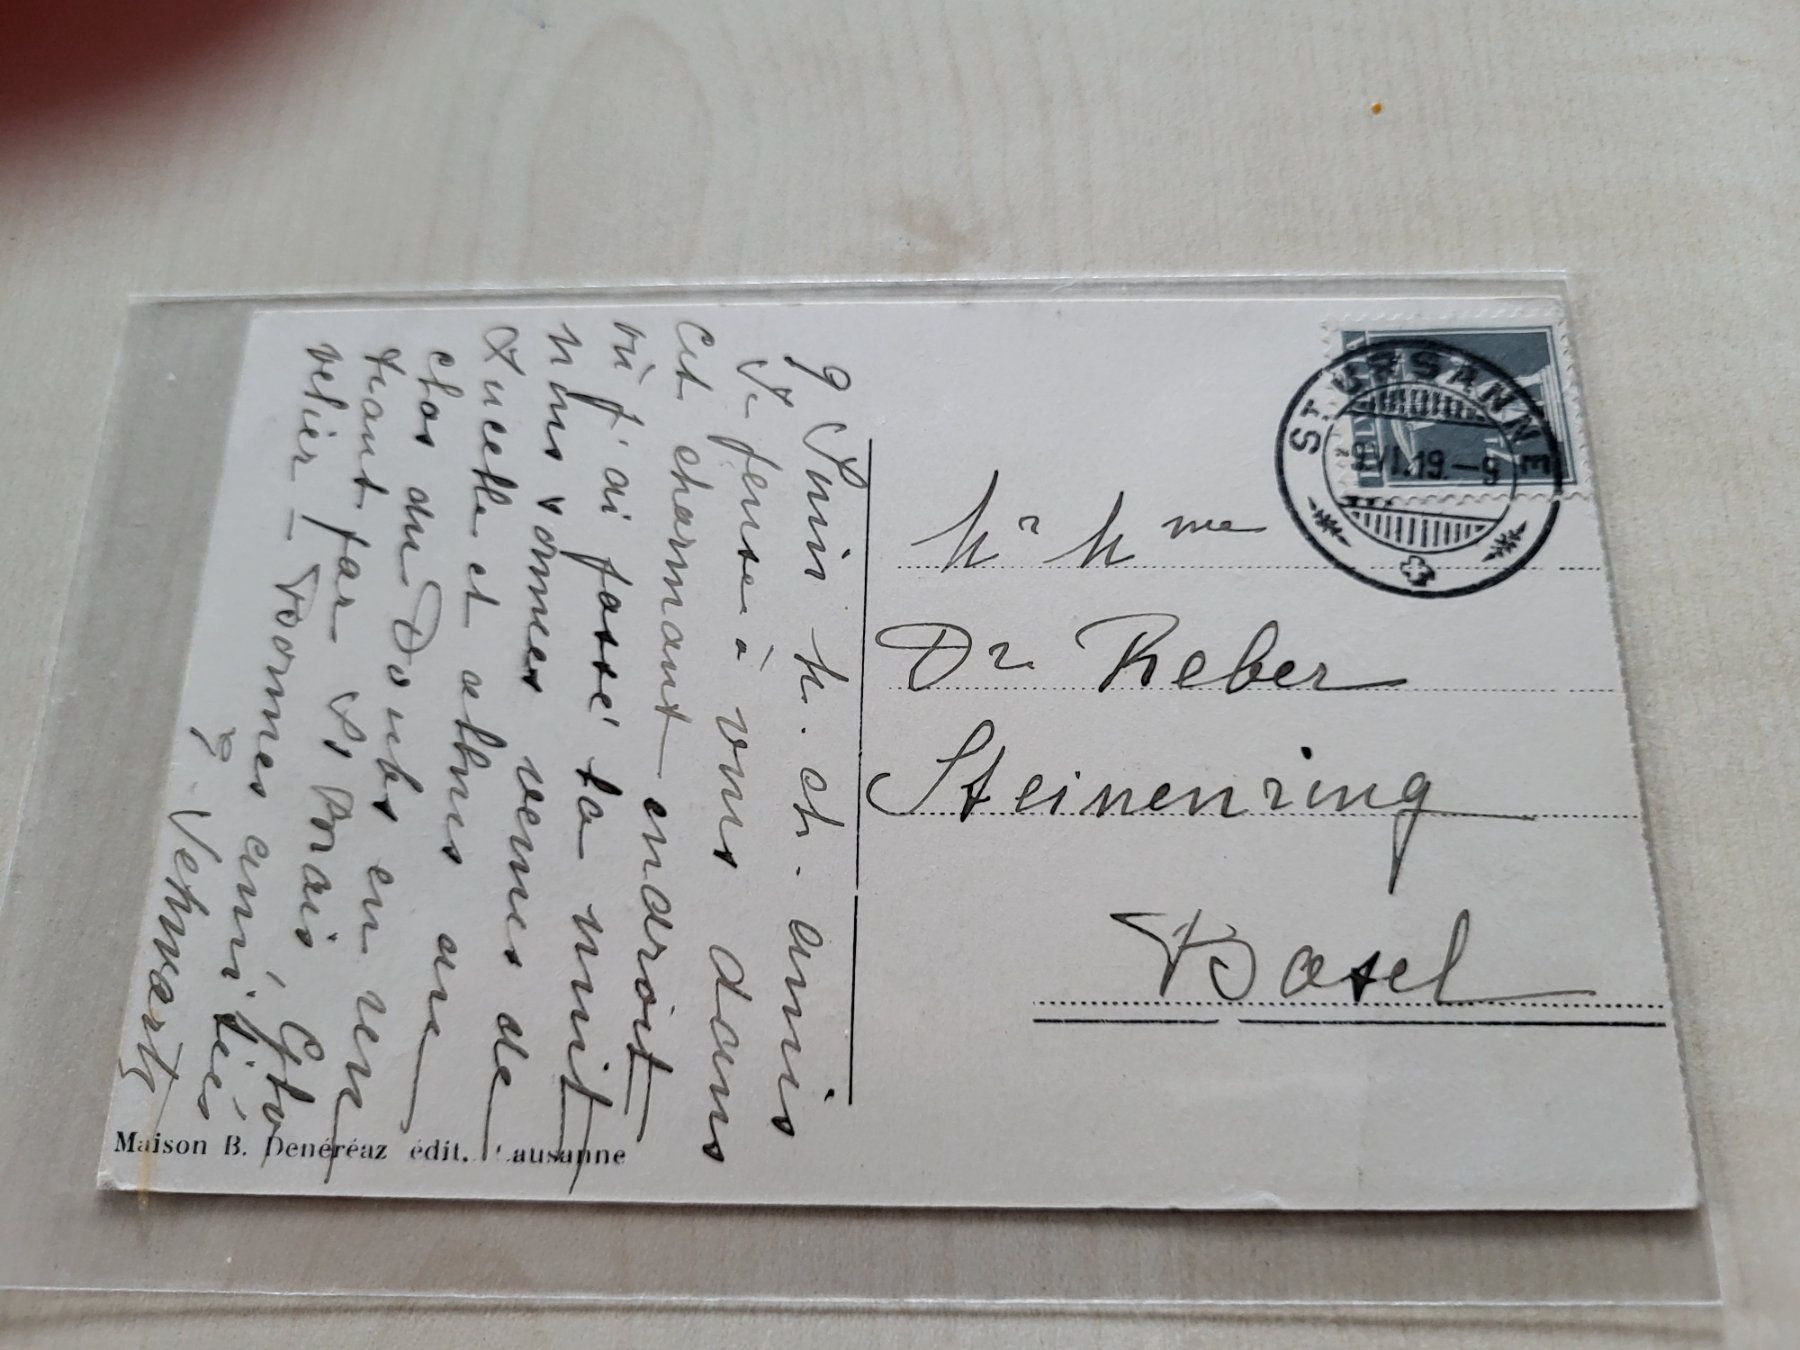 9 Juin M. ch. amis
Je pense à vous dans
cet charmant endroit
où j'ai passé la nuit
nous sommes venus de
Lucelle et allons au
clos du Doubs en ren
trant par St Brais, Glo
velier – Bonnes amitiés
Mr Mme
Dr Reber
Steinenring
Basel
ST. URSANNE
9.VI.19.–9
Maison B. Denéréaz édit. Lausanne